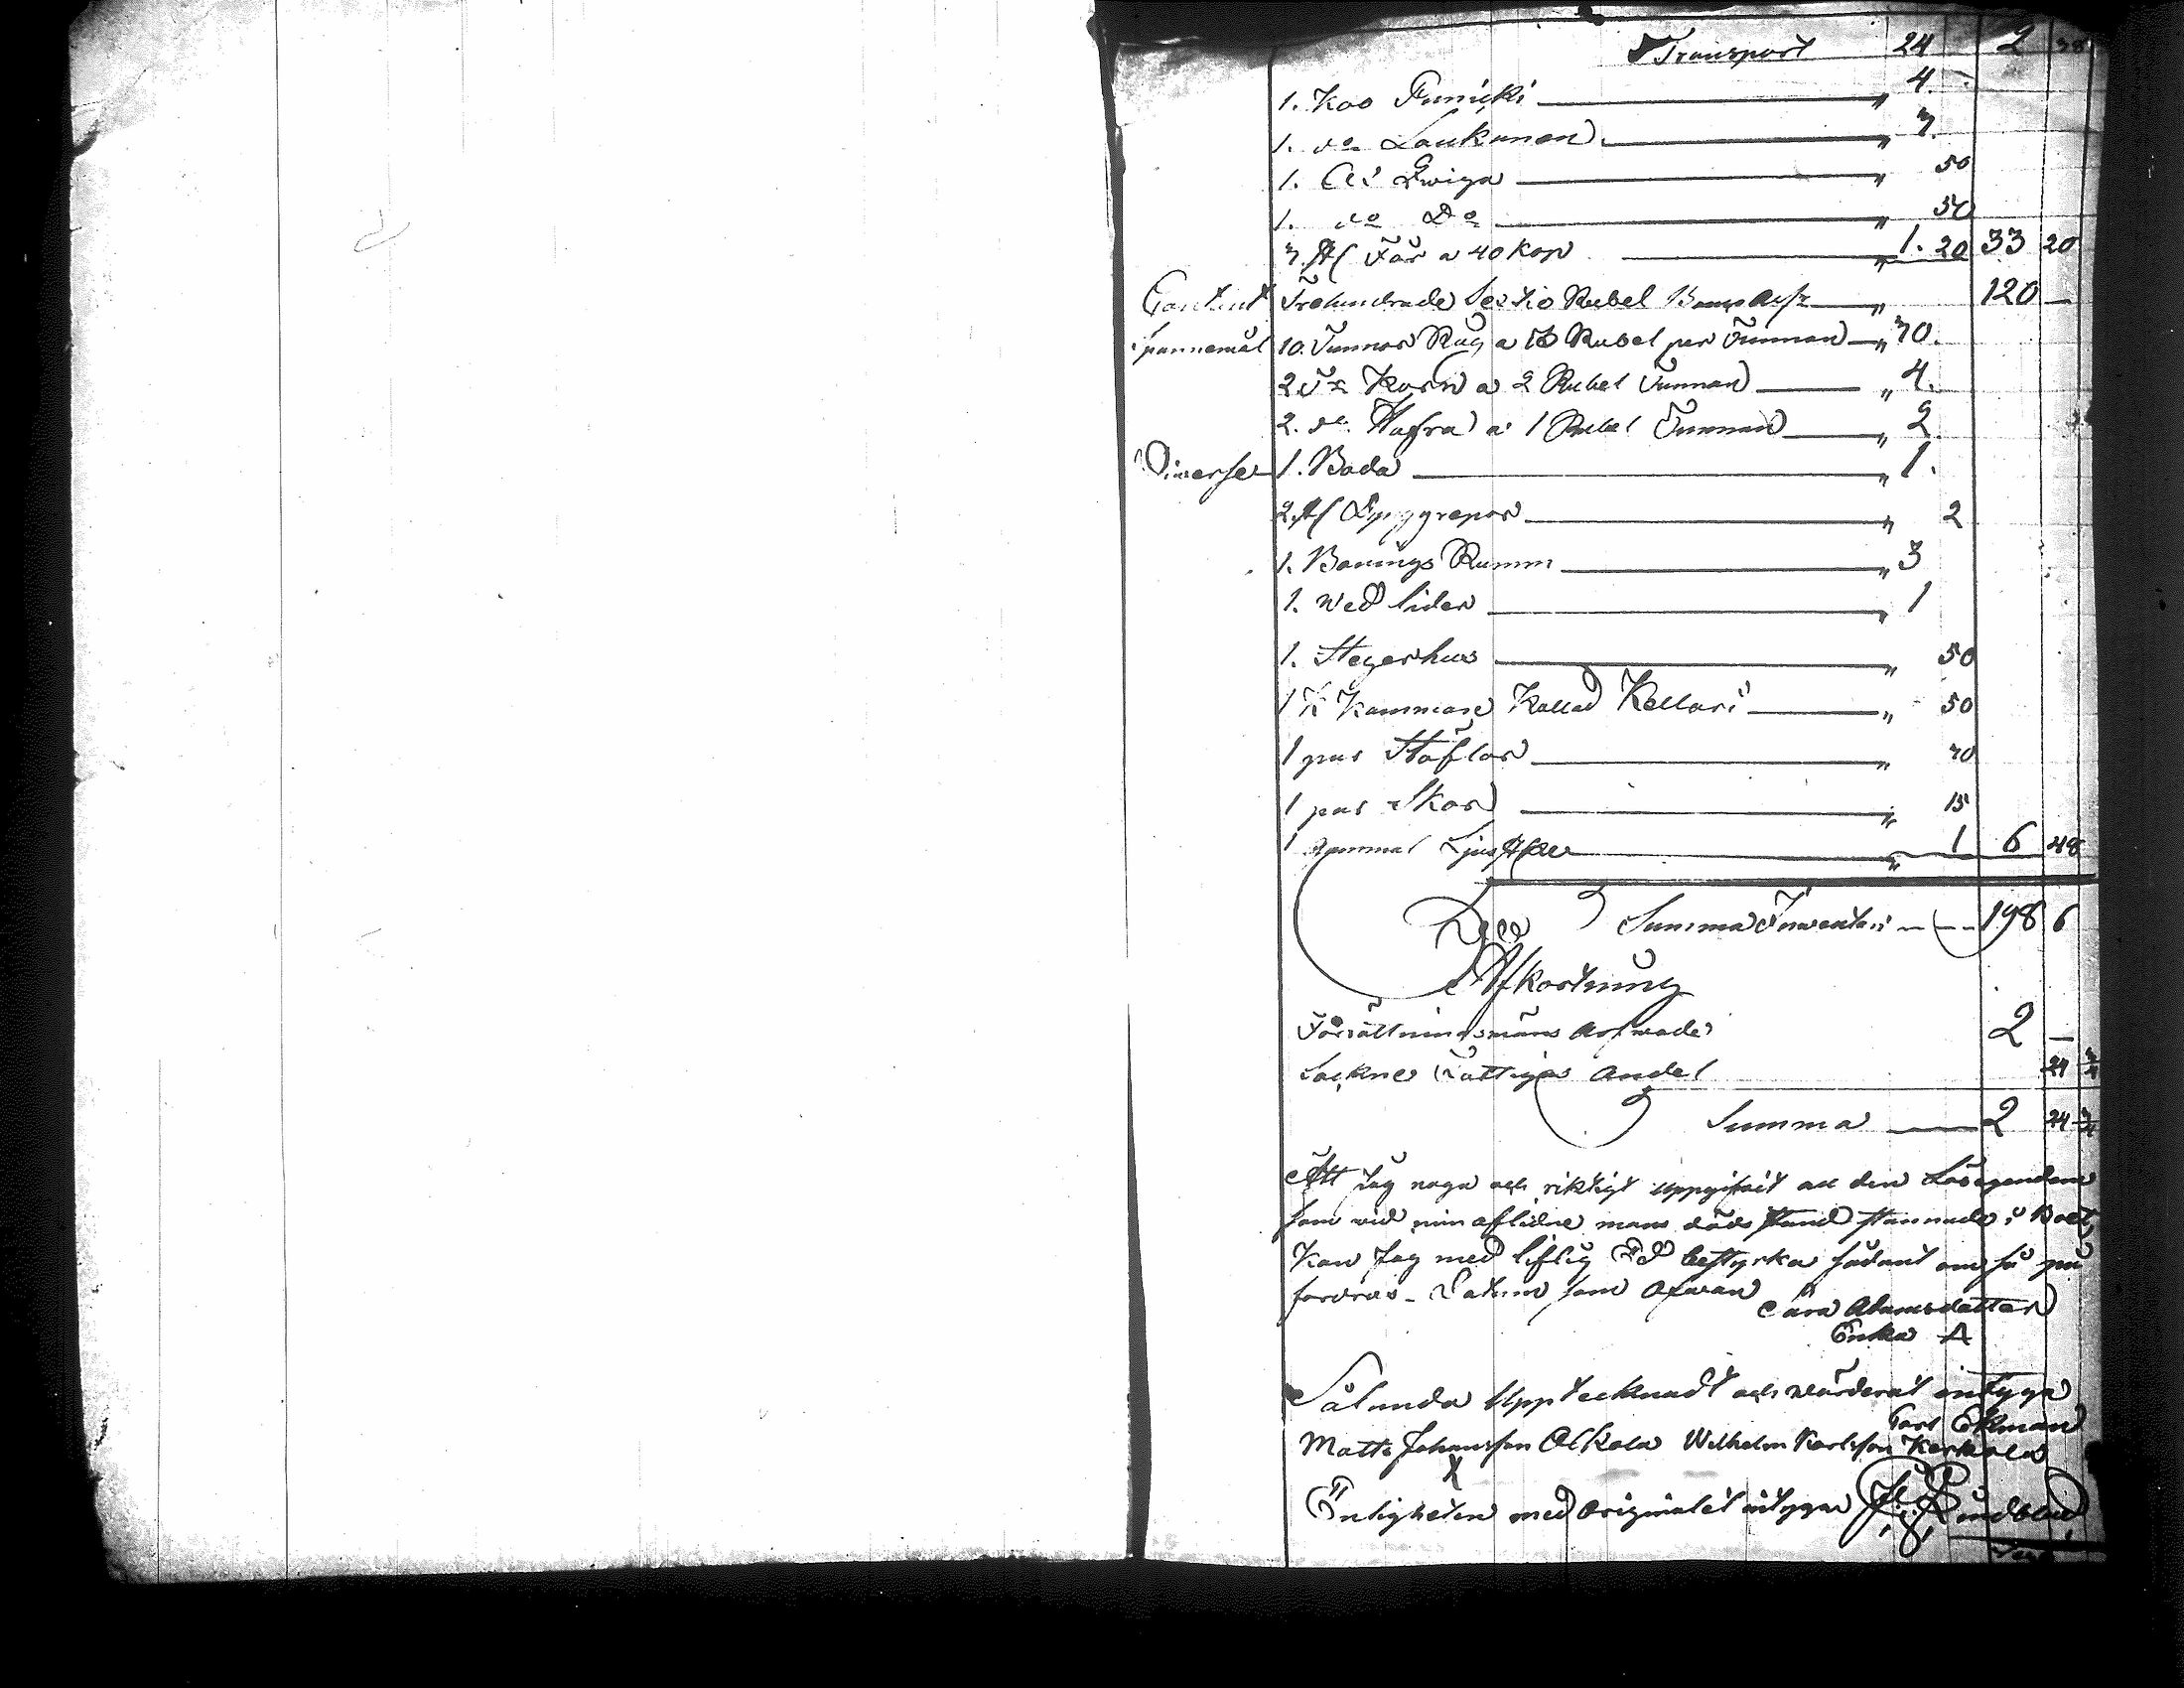 Transport 24 2 38
1. Koo Funicki „ 4.
1. do Laukanen „ 3.
1. Års Qwiga „ 50
1. do Do „ 50
3. st Får a 40 Kop „ 1. 20 33 20
Contant Trehundrade Sextio Rubel Banco Ass „ 120 —
Spannemål 10. Tunnor Råg a 3 Rubel per Tunnan „ 30.
2 Tr Korn a 2 Rubel Tunnan „ 4.
2. do Hafra a 1 Rubel Tunnan „ 2.
Diverse 1. Boda „ 1.
2 st „ 2
1. Bonings Rumm „ 3
1. Wed lider „ 1
1. Stegerhus „ 50
1 K Kammare Kallad Kellari „ 50
1 par Stöflor „ 30
1 par Skor „ 15
1 gammal Ljus „ 1 6 48
Summa Inventarii 198 6
Afkortning
Förrättningsmäns Arfwode 2 —
Sockne Fattiga Andel 24 3/4
Summa 2 24 3/4
Att Jag noga och riktigt uppgifvit all den Lösegendom
som vid min aflidne mans döds stund stannade i Boet,
Kan Jag med liflig Ed bestyrka sådant om så på
fordras - Datum som ofwan
Cara Adamsdotter
Enka
Sålunda Upptecknadt och wärderat intyga
Carl Ekman
Matts Johansson Olkola Wilhelm Karlsson Kerkola
X
Enligheten med Originalet intygar Lundblad